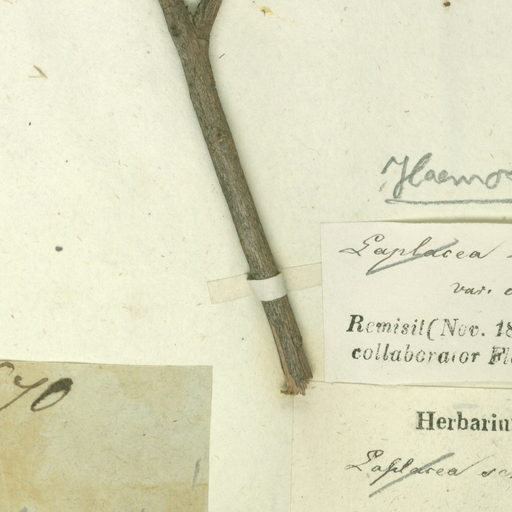 Haemo
Laplacea
var.
Remisit (Nov. 18
collaborator Fl
Herbariu
Laplacea se
70